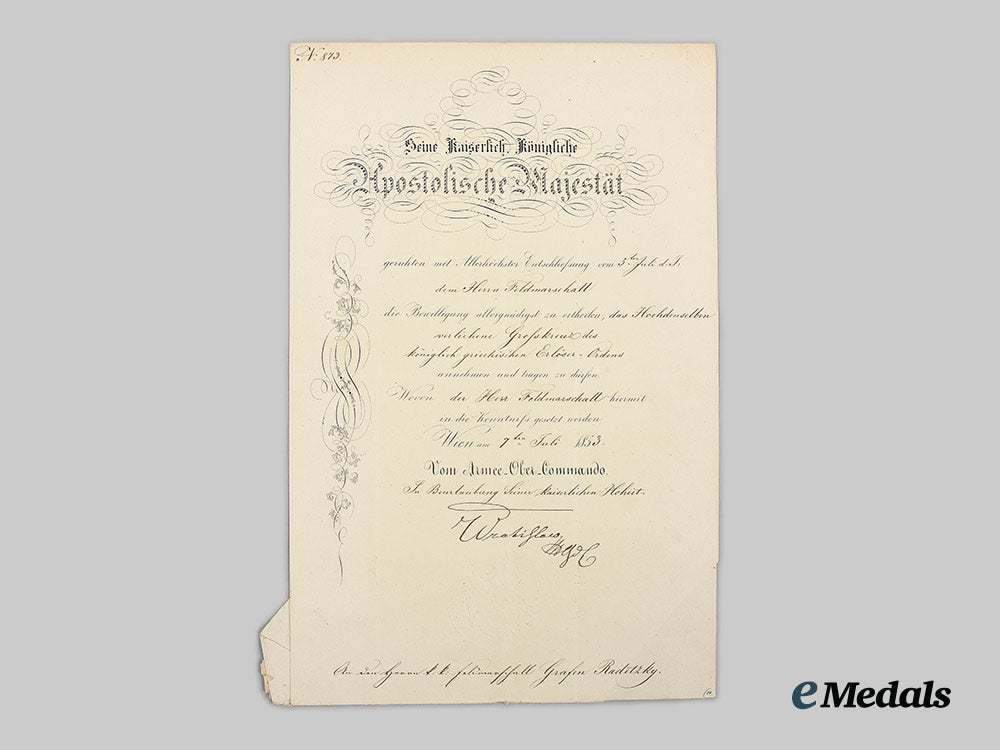 N: 873.
Seine Kaiserlich. Königliche
Apostolische Majestät
geruhten mit Allerhöchster Entschließung vom 5ten Juli d. J.
dem Herrn Feldmarschall
die Bewilligung allergnädigst zu ertheilen, das Hochdenselben
verliehene Großkreuz des
königlich griechischen Erlöser-Ordens
annehmen und tragen zu dürfen.
Wovon der Herr Feldmarschall hiermit
in die Kenntniß gesetzt werden
Wien am 7ten Juli 1853.
Vom Armee-Ober-Commando.
In Beurlaubung Seiner kaiserlichen Hoheit.
Wratislaw
GdC
An den Herrn k. k. Feldmarschall Grafen Raditzky.
eMedals